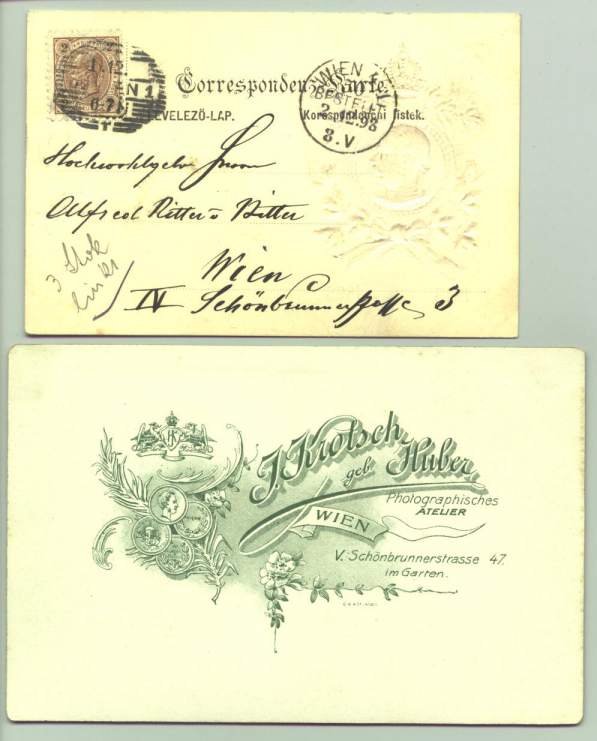 Correspondenz-Karte.
LEVELEZÖ-LAP. Korespondenční lístek.
WIEN 1
6-7
WIEN
BESTELLT
2.12.98
8.V
Hochwohlgebor Herrn
Alfred Ritter v
Wien
IV Schönbrunnerstrasse 3
3 Stok
links
J. Krotsch,
geb. Huber,
Photographisches
ATELIER
WIEN
V. Schönbrunnerstrasse 47.
im Garten.